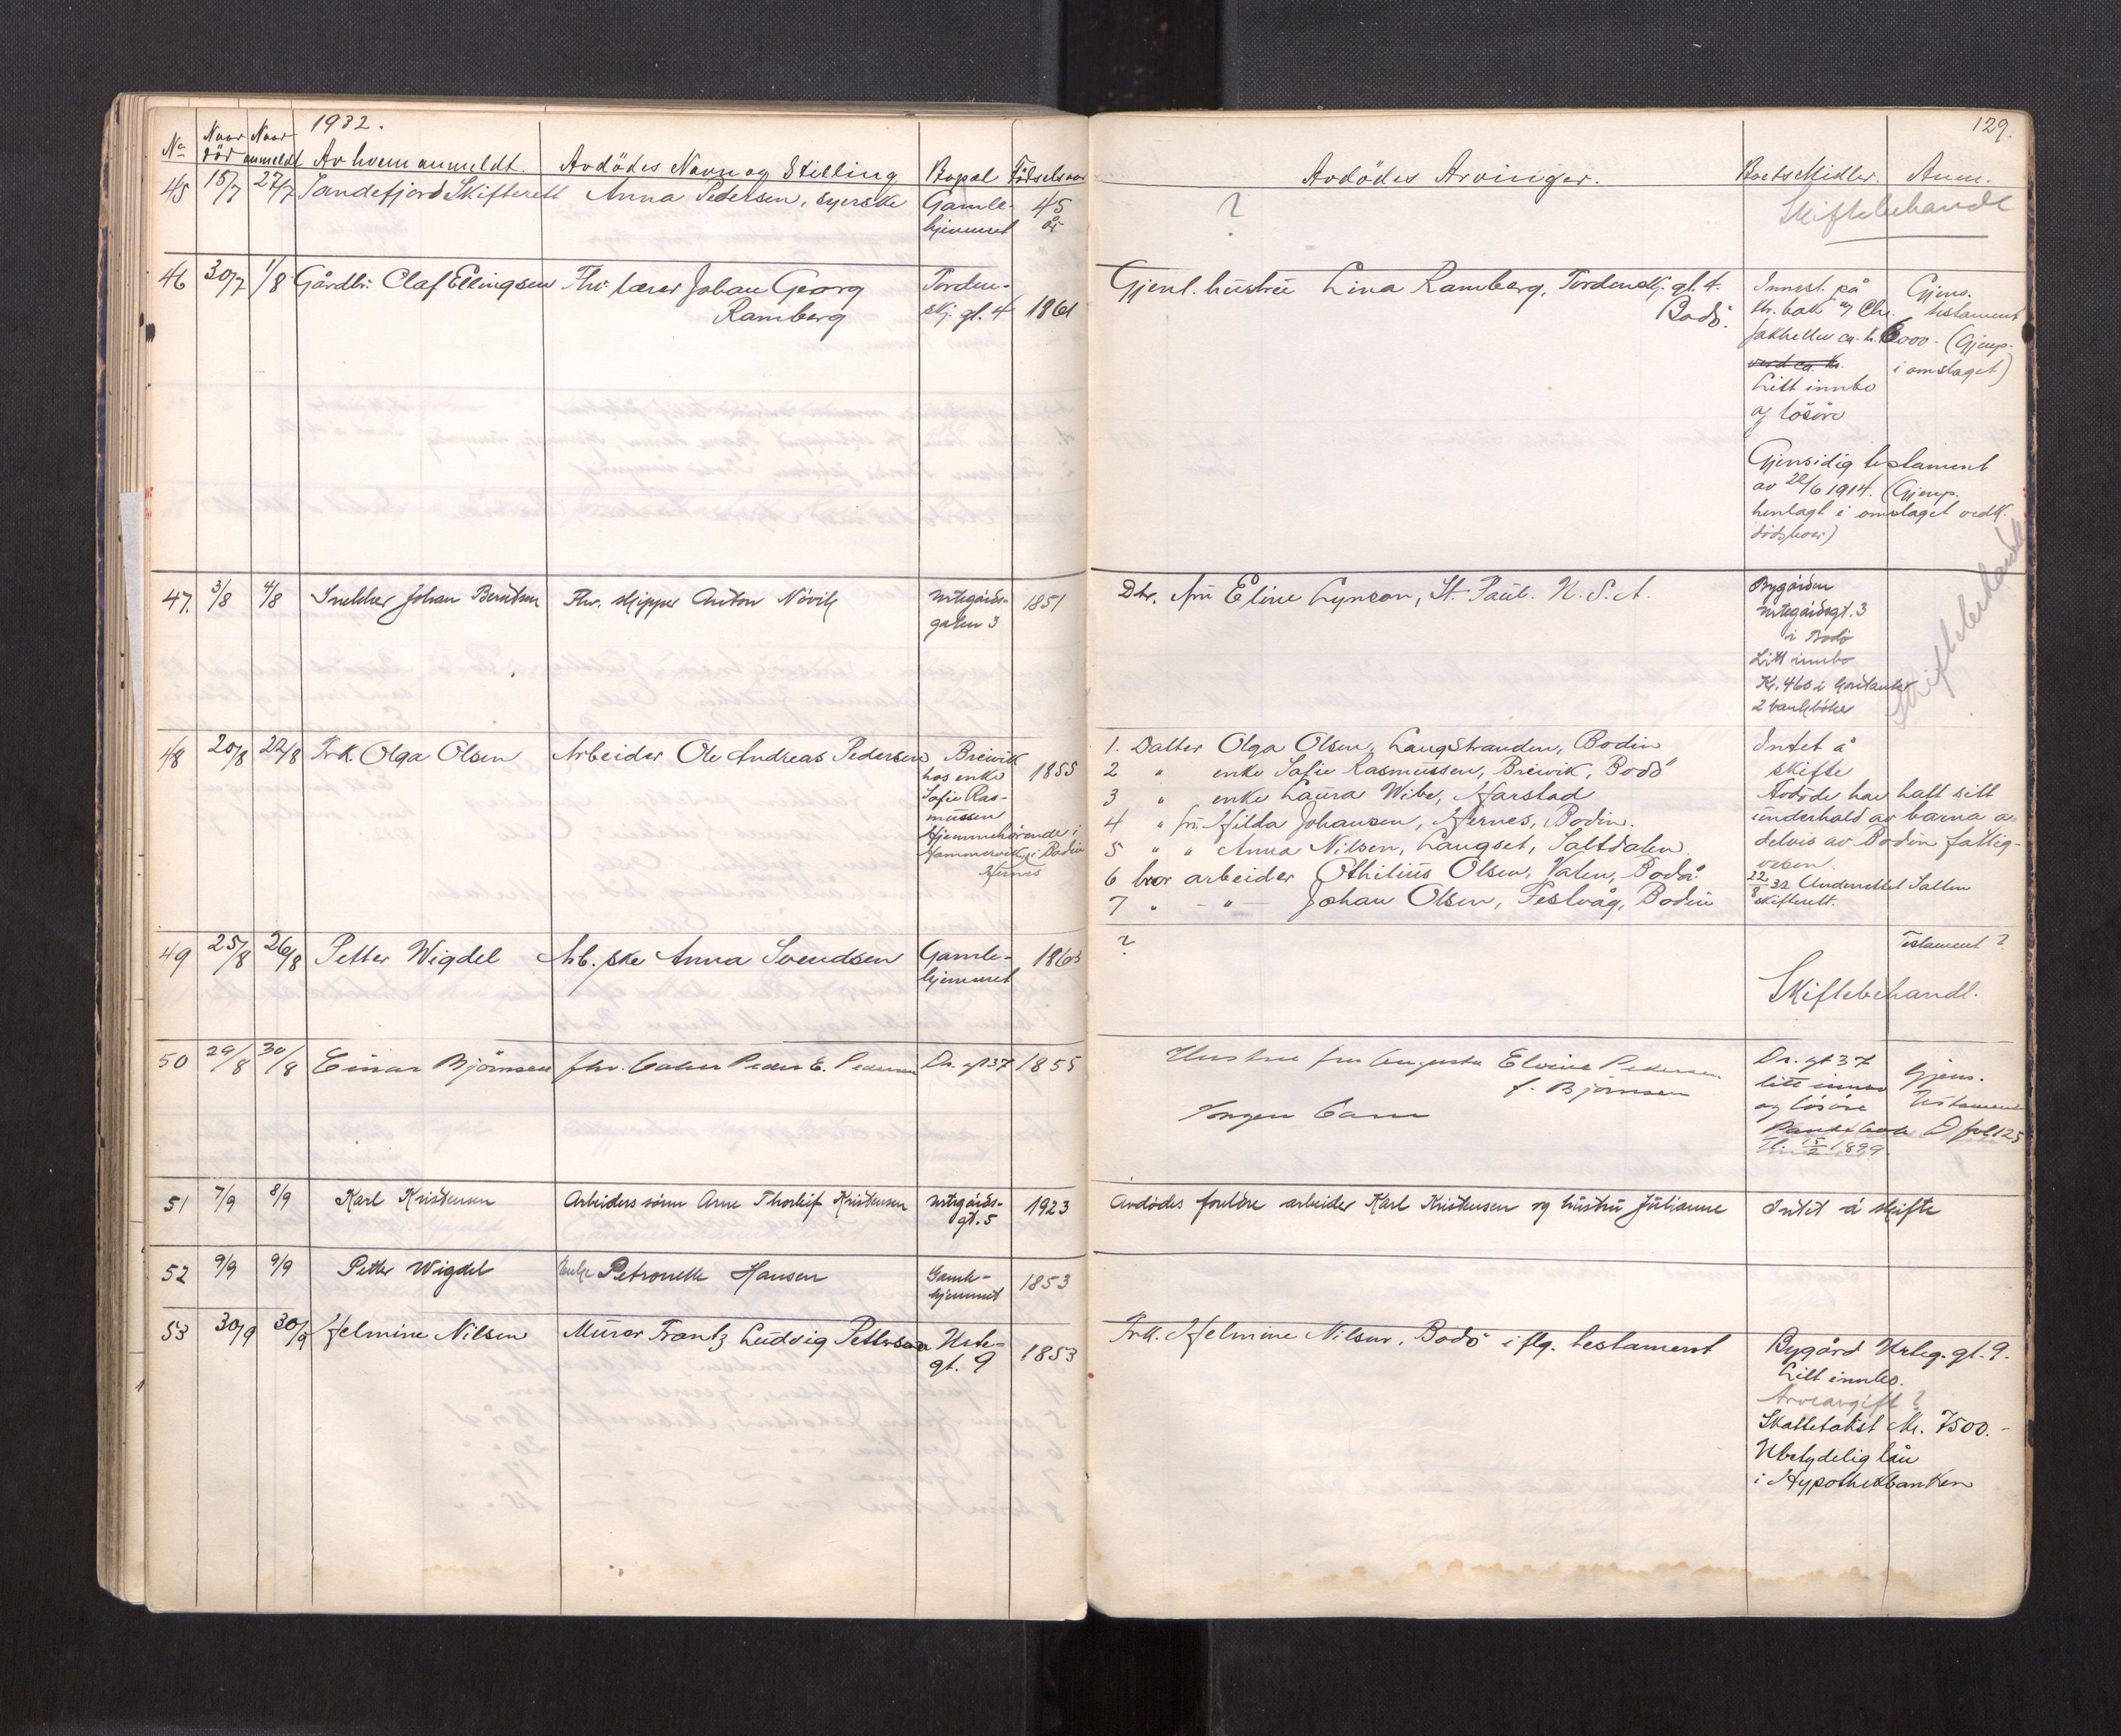 1932.
129.
No Naar död Naar anmeldt Av hvem anmeldt. Avdödes Navn og Stilling Bopæl Fødselsaar
Avdödes Arvinger. Boets Midler. Anm.
45 18/7 27/7 Sandefjord Skifterett Anna Pedersen, syerske Gamle- 45
hjemmet år
? Skiftebehandl
46 30/7 1/8 Gårdbr. Olaf Ellingsen Fhv. lærer Johan Georg Torden-
Ramberg skj. gt. 4 1861
Gjenl. hustru Lina Ramberg, Tordenskj. gt. 4.
Bodö.
Innest. på
kr. bok og Chr.
Jakhelln ca. kr. 6000.-
verd ca. kr.
Litt innbo
og lösöre
Gjens.
testament
(Gjenp.
i omslaget)
Gjensidig testament
av 22/6 1914. (Gjenp.
henlagt i omslaget vedk.
dödsboer)
47. 3/8 4/8 Snekker Johan Berntsen Fhv. skipper Anton Növik Urtegårds- 1851
gaten 3
Dtr. fru Eline Lynson, St. Paul. U. S. A.
Bygården
Urtegårdsgt. 3
i Bodö
Litt innbo
Kr. 460 i kontanter
2 bankböker
Skiftebehandl
48 20/8 22/8 Frk. Olga Olsen Arbeider Ole Andreas Pedersen Breivik 1855
hos enke
Sofie Ras-
mussen
Hjemmehörende i
Hammervik i Bodin
Hernes
1. Datter Olga Olsen, Langstranden, Bodin
2 " enke Sofie Rasmussen, Breivik, Bodö
3 " enke Laura Wibe, Harstad
4 " fru Hilda Johansen, Hernes, Bodin.
5 " " Anna Nilsen, Langset, Saltdalen
6 bror arbeider Othilius Olsen, Valen, Bodö.
7 " - " - Johan Olsen, Festvåg, Bodin
Intet å
skifte
Avdöde har hatt sitt
underhold av barna og
delvis av Bodin fattig-
vesen.
22/8 32 Underrettet Salten
skifterett.
49 25/8 26/8 Petter Wigdel Arb.ske Anna Svendsen Gamle- 1863
hjemmet
? Testament?
Skiftebehandl.
50 29/8 30/8 Einar Björnsen fhv. baker Peder E. Pedersen Dr. gt 37 1855
Hustru fru Augusta Elvine Pedersen
f. Björnsen
Ingen barn
Dr. gt 37
litt innbo
og lösöre
Pantebok D fol 125
Tl. 15/2 1899
Gjens.
Testament
51 7/9 8/9 Karl Kristensen Arbeiders sönn Arne Thorleif Kristensen Urtegårds- 1923
gt. 5
Avdödes foreldre arbeider Karl Kristensen og hustru Julianne Intet å skifte
52 9/9 9/9 Petter Wigdel Enke Petronelle Hansen Gamle- 1853
hjemmet
53 30/9 30/9 Helmine Nilsen Murer Frantz Ludvig Petterson Urte- 1853
gt. 9
Frk. Helmine Nilsen, Bodö iflg. testament
Bygård Urteg. gt. 9.
Litt innbo.
Arveavgift?
Skattetakst kr. 7500.-
Ubetydelig lån
i Hypotekbanken